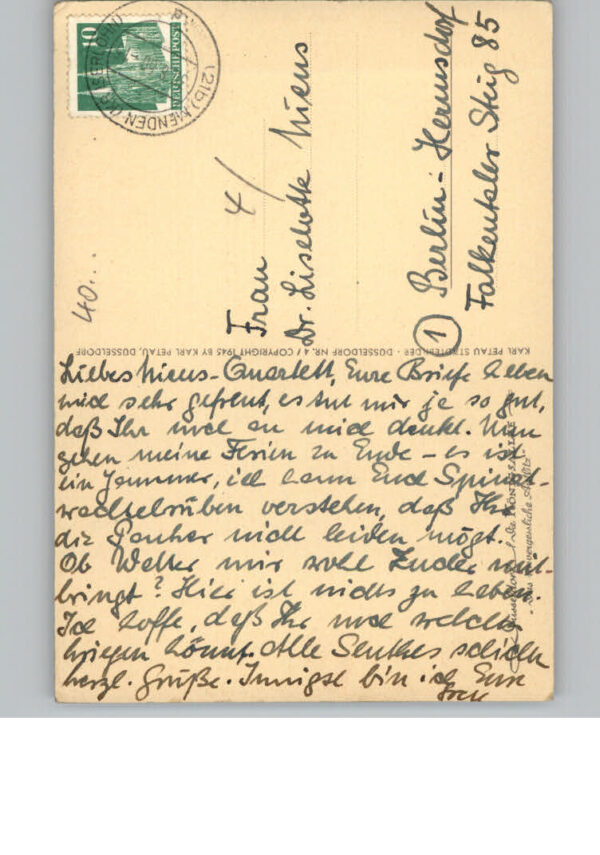 10
DEUTSCHE POST
(21b) MENDEN (KR ISERLOHN)
4/
40...
Frau
Dr. Liselotte Nicus
① Berlin-Hermsdorf
Falkentaler Steig 85
KARL PETAU STÄDTEBILDER · DÜSSELDORF NR. 4 / COPYRIGHT 1945 BY KARL PETAU, DÜSSELDORF
Liebes Nicus-Quartett, Eure Briefe haben
mich sehr gefreut, es tut mir ja so gut,
daß Ihr noch an mich denkt. Nun
gehen meine Ferien zu Ende – es ist
ein Jammer, ich kann Euch
verstehen, daß Ihr
die nicht leiden mögt.
Ob Walter mir wohl mit-
bringt? Hier ist nichts zu haben.
Ich hoffe, daß Ihr noch welche
kriegen könnt. Alle schicken
herzl. Grüße. Innigst bin ich Eure